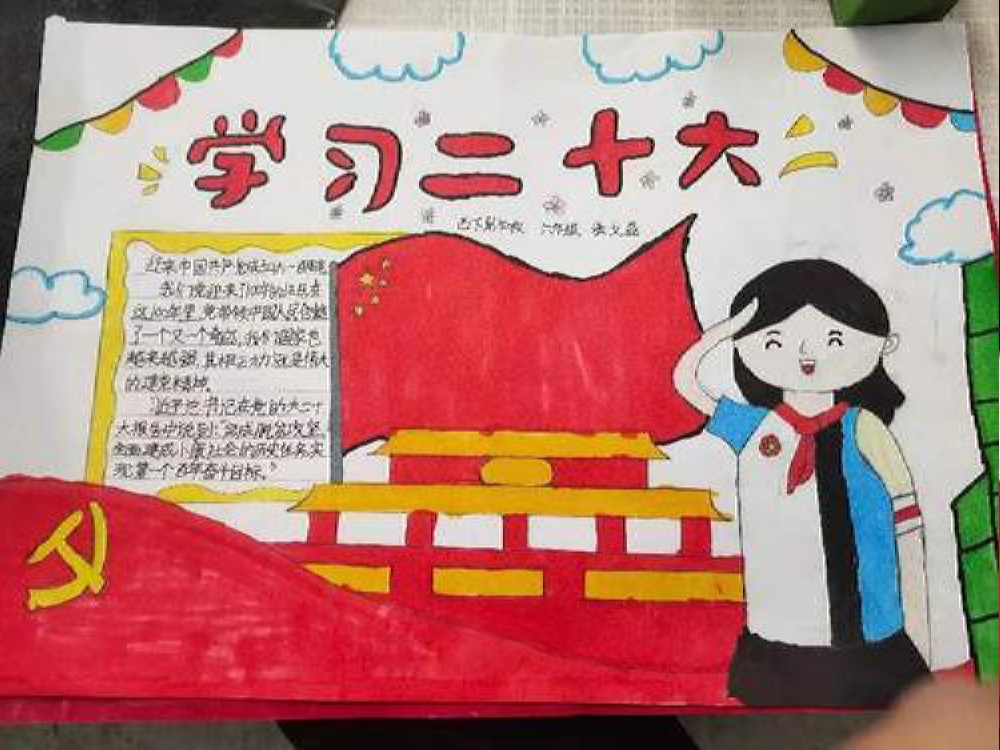 学习二十大
六年级 张文磊
近来中国共产党成立从一百周年
我们党迎来100周
这100年里，党带领中国人民合越
了一个又一个奇迹，我们国家也
越来越强，其根云力就是伟大
的建党精神。
习近平总书记在党的二十
大报告中说到：完成脱贫攻坚
全面建成小康社会的历史任务，实
现第一个百年奋斗目标。"